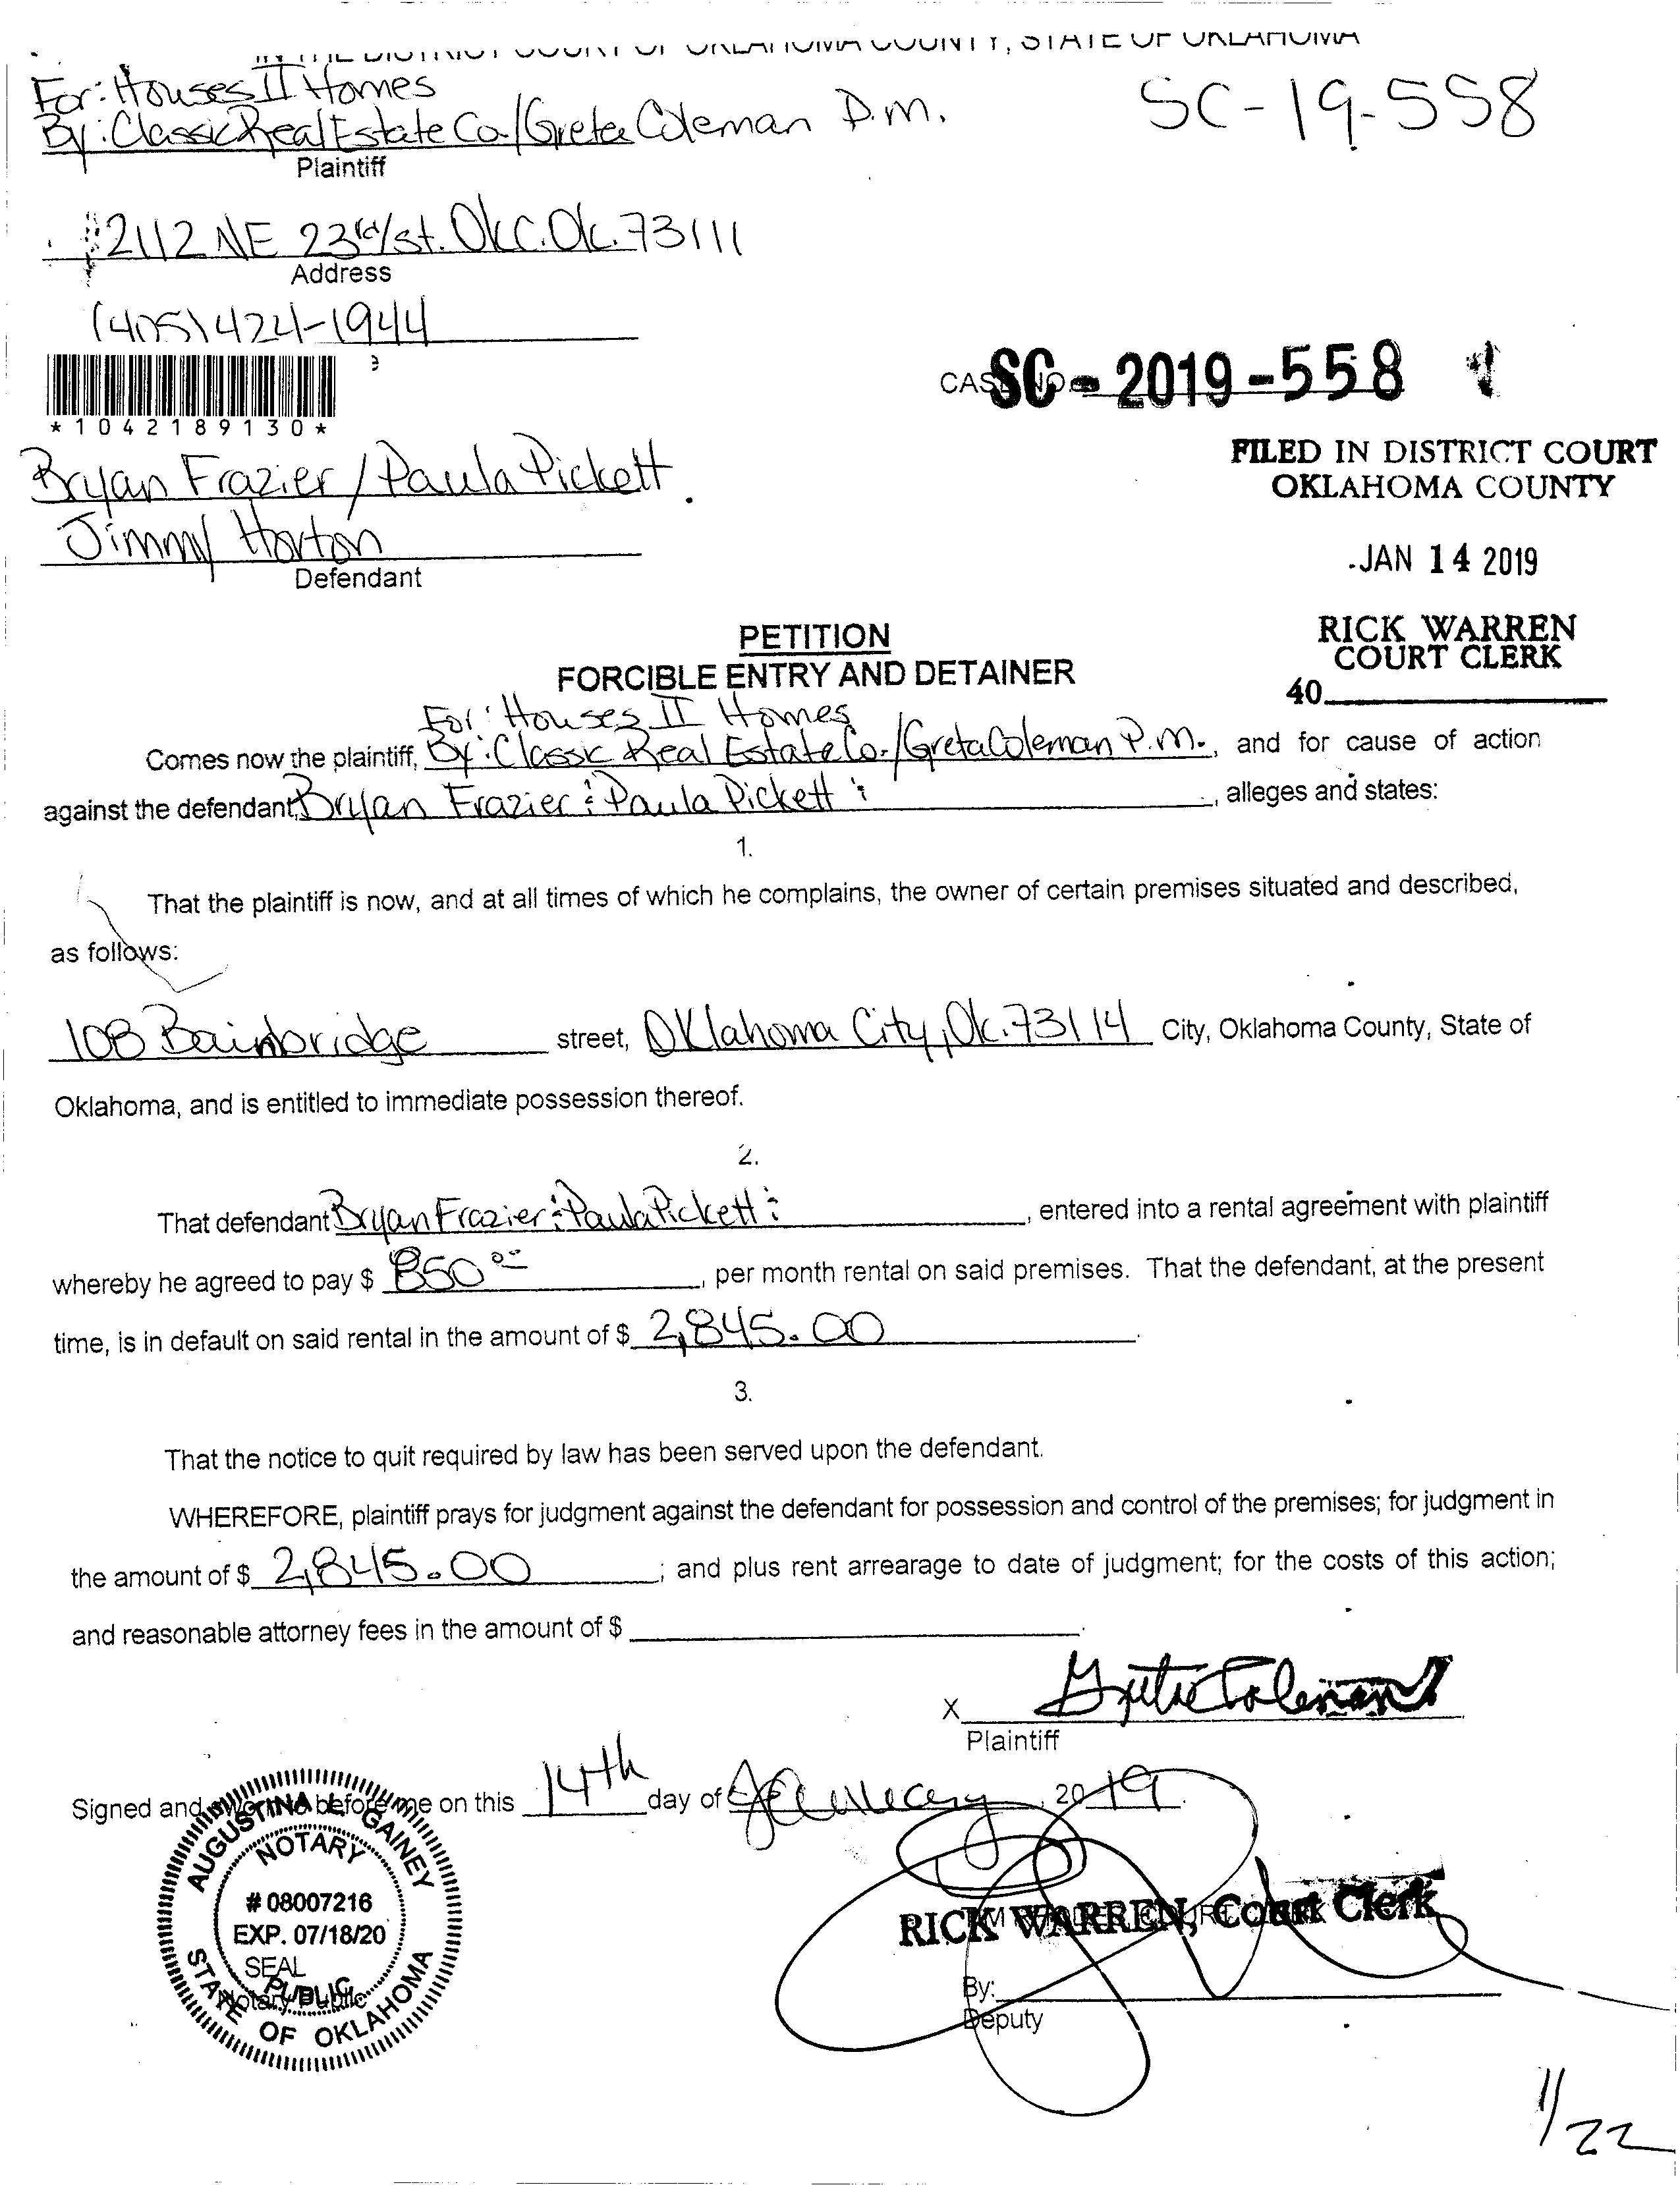 IN THE DISTRICT COURT OF OKLAHOMA COUNTY, STATE OF OKLAHOMA
For: Houses II Homes
By: Classic Real Estate Co./Greta Coleman P.M.
SC-19-558
Plaintiff
2112 NE 23rd/st. Okc. Ok. 73111
Address
(405) 424-1944
*1042189130*
CASE NO. SC - 2019 - 558
Bryan Frazier / Paula Pickett
Jimmy Horton
Defendant
FILED IN DISTRICT COURT
OKLAHOMA COUNTY
JAN 14 2019
RICK WARREN
COURT CLERK
40
PETITION
FORCIBLE ENTRY AND DETAINER
For: Houses II Homes
Comes now the plaintiff, By: Classic Real Estate Co./Greta Coleman P.M., and for cause of action
against the defendant, Bryan Frazier & Paula Pickett &, alleges and states:
1.
That the plaintiff is now, and at all times of which he complains, the owner of certain premises situated and described,
as follows:
108 Bainbridge street, Oklahoma City, Ok. 73114 City, Oklahoma County, State of
Oklahoma, and is entitled to immediate possession thereof.
2.
That defendant Bryan Frazier & Paula Pickett &, entered into a rental agreement with plaintiff
whereby he agreed to pay $ 850.00, per month rental on said premises. That the defendant, at the present
time, is in default on said rental in the amount of $ 2,845.00.
3.
That the notice to quit required by law has been served upon the defendant.
WHEREFORE, plaintiff prays for judgment against the defendant for possession and control of the premises; for judgment in
the amount of $ 2,845.00; and plus rent arrearage to date of judgment; for the costs of this action;
and reasonable attorney fees in the amount of $
X Greta Coleman
Plaintiff
Signed and sworn to before me on this 14th day of January, 2019.
AUGUSTINA L. GAINEY
NOTARY
# 08007216
EXP. 07/18/20
SEAL
PUBLIC
Notary Public
STATE OF OKLAHOMA
RICK WARREN, Court Clerk
By:
Deputy
1/22